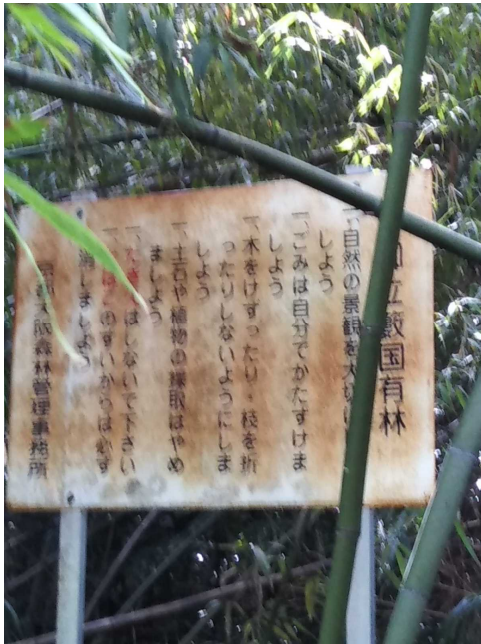 立藪国有林
一、自然の景観を大切に
しよう
一、ごみは自分でかたずけま
しよう
一、木をけずったり・枝を折
ったりしないようにしま
しよう
一、土石や植物の採取はやめ
ましよう
一、たき火はしないで下さい
一、たばこのすいがらは必ず
消しましよう
京都大阪森林管理事務所